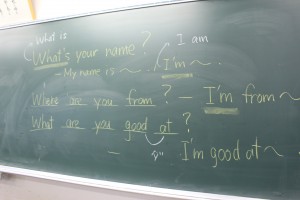 What is
I am
What's your name?
I'm ~.
My name is ~.
Where are you from? - I'm from ~
What are you good at?
- I'm good at ~